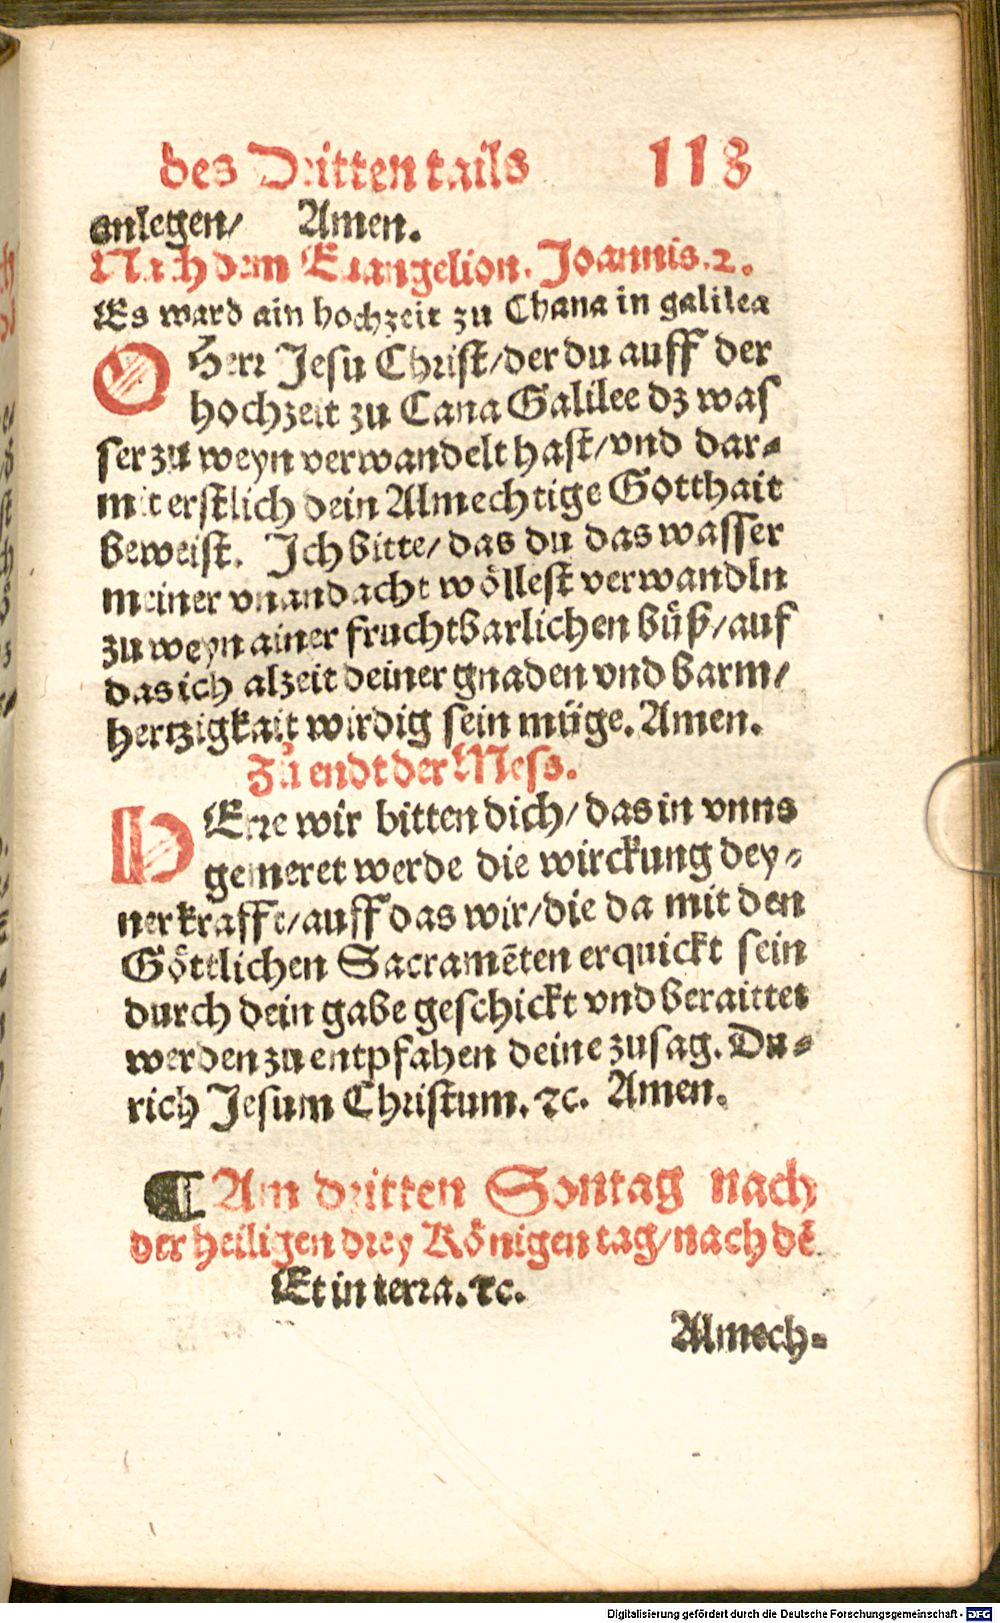 des Dritten tails 118
anlegen/ Amen.
Nach dem Euangelion. Joannis. 2.
Es ward ain hochzeit zu Chana in galilea
O Herr Jesu Christ/der du auff der
hochzeit zu Cana Galilee dz was
ser zu weyn verwandelt hast/vnd dar-
mit erstlich dein Almechtige Gotthait
beweist. Ich bitte/das du das wasser
meiner vnandacht wöllest verwandln
zu weyn ainer fruchtbarlichen büß/auf
das ich alzeit deiner gnaden vnd barm/
hertzigkait wirdig sein müge. Amen.
Zů endt der Mess.
HErre wir bitten dich/das in vnns
gemeret werde die wirckung dey-
ner krafft/auff das wir/die da mit den
Göttlichen Sacramēten erquickt sein
durch dein gabe geschickt vnd beraittet
werden zu entpfahen deine zusag. Du-
rich Jesum Christum. ⁊c. Amen.
¶ Am dritten Sontag nach
der heiligen drey Königen tag/nach dē
Et in terra. ⁊c.
Almech-
Digitalisierung gefördert durch die Deutsche Forschungsgemeinschaft - DFG